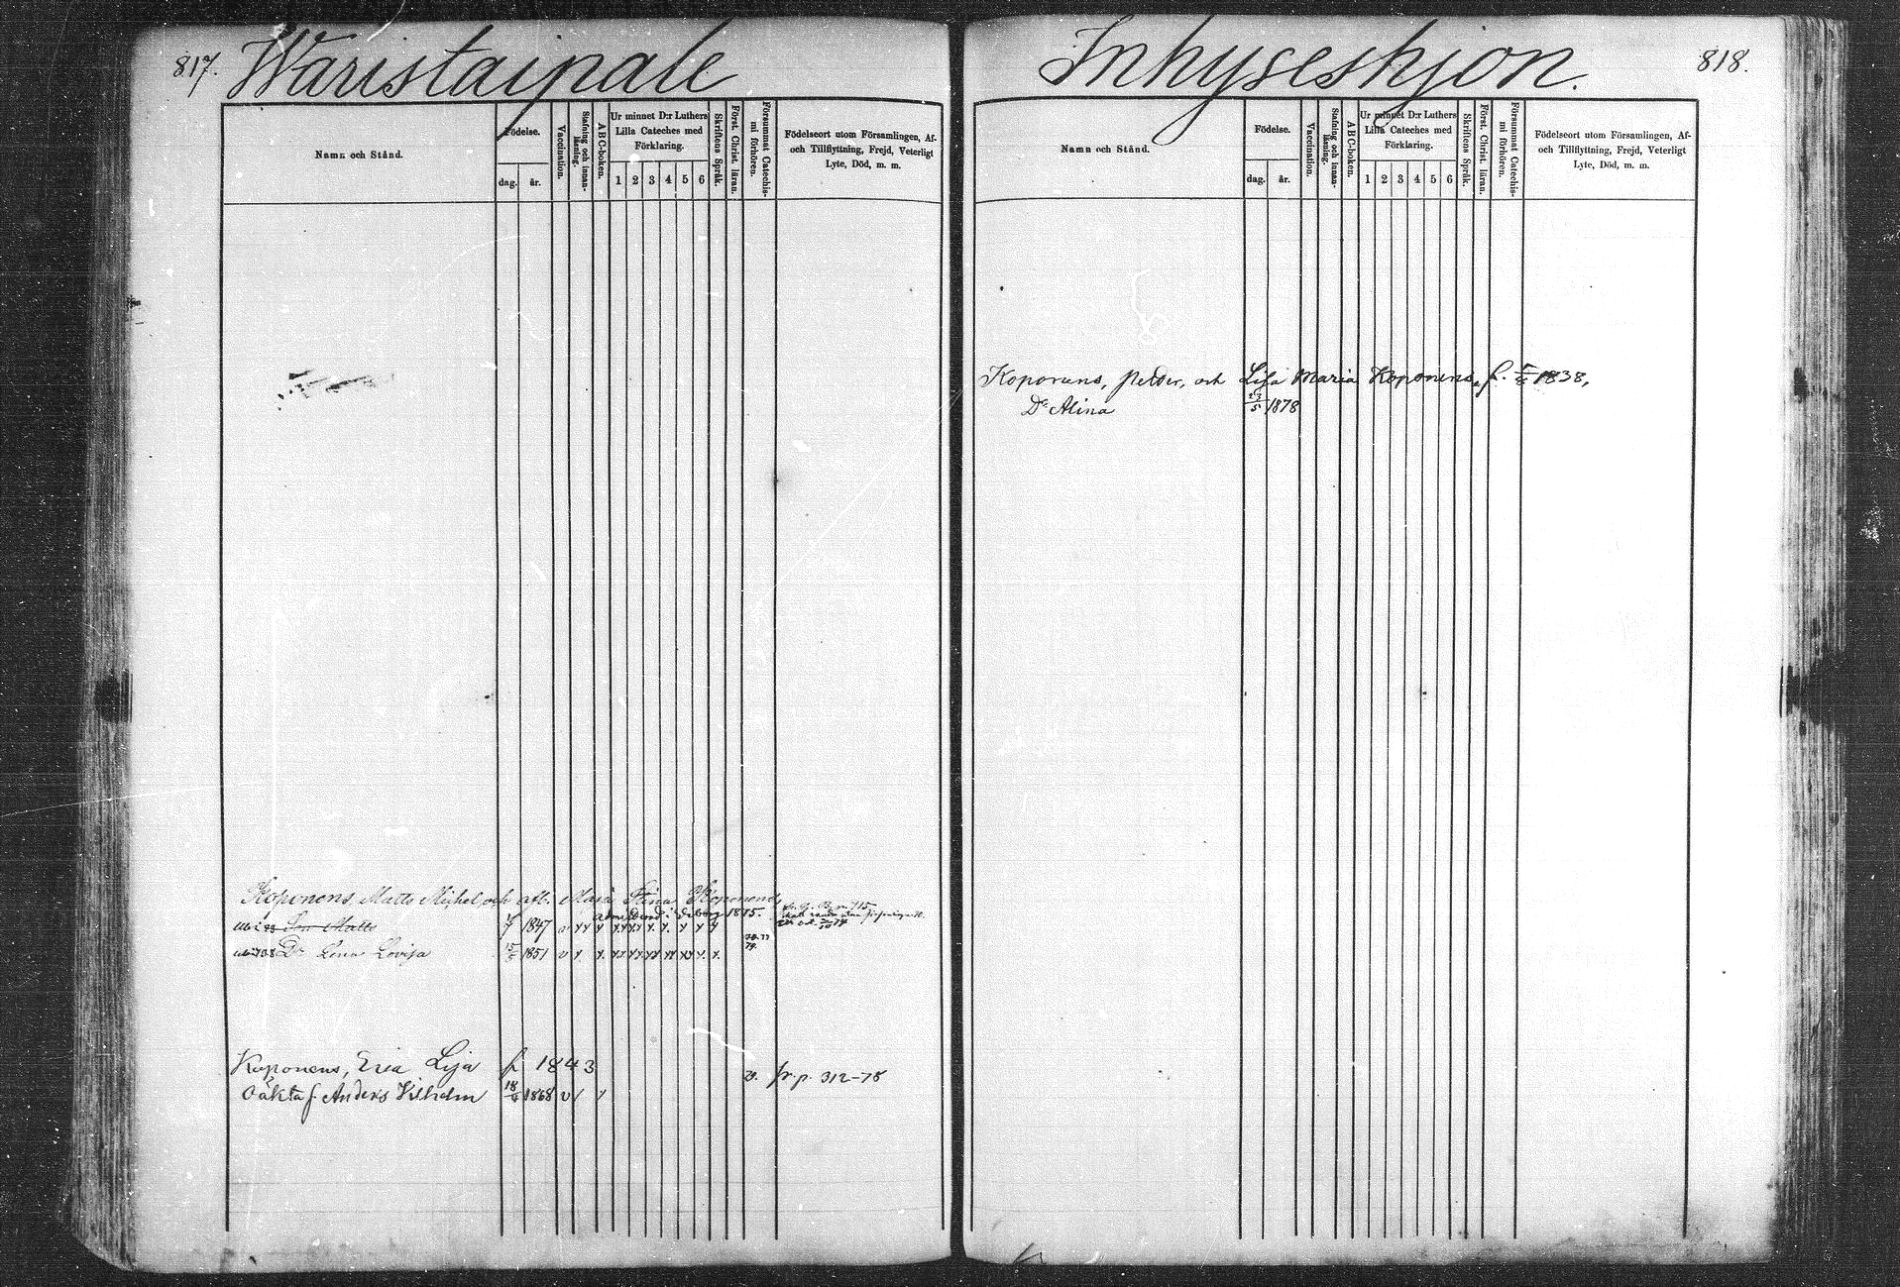 817. Waristaipale
Namn och Stånd.
Födelse.
dag. år.
Vaccination.
Stafning och innan-läsning.
A B C-boken.
Ur minnet D:r Luthers Lilla Cateches med Förklaring.
1 2 3 4 5 6
Skriftens Språk.
Först. Christ. läran.
Försummat Catechis-mi förhören.
Födelseort utom Församlingen, Af-
och Tillflyttning, Frejd, Veterligt
Lyte, Död, m. m.
Koponens, Matts Michel, och afl. Maria Stina Koponens,
Son Matts 1847
D:r Lena Lovisa 1851
Koponens, Eva Lisa f. 1843 fr. p. 312-78
Oäkta s. Anders Vilhelm 18 1868
Inhyseshjon. 818.
Namn och Stånd.
Födelse.
dag. år.
Vaccination.
Stafning och innan-läsning.
A B C-boken.
Ur minnet D:r Luthers Lilla Cateches med Förklaring.
1 2 3 4 5 6
Skriftens Språk.
Först. Christ. läran.
Försummat Catechis-mi förhören.
Födelseort utom Församlingen, Af-
och Tillflyttning, Frejd, Veterligt
Lyte, Död, m. m.
Koponens, Petter, och Lisa Maria Koponens, f. 1838,
D:r Alina 23/5 1878